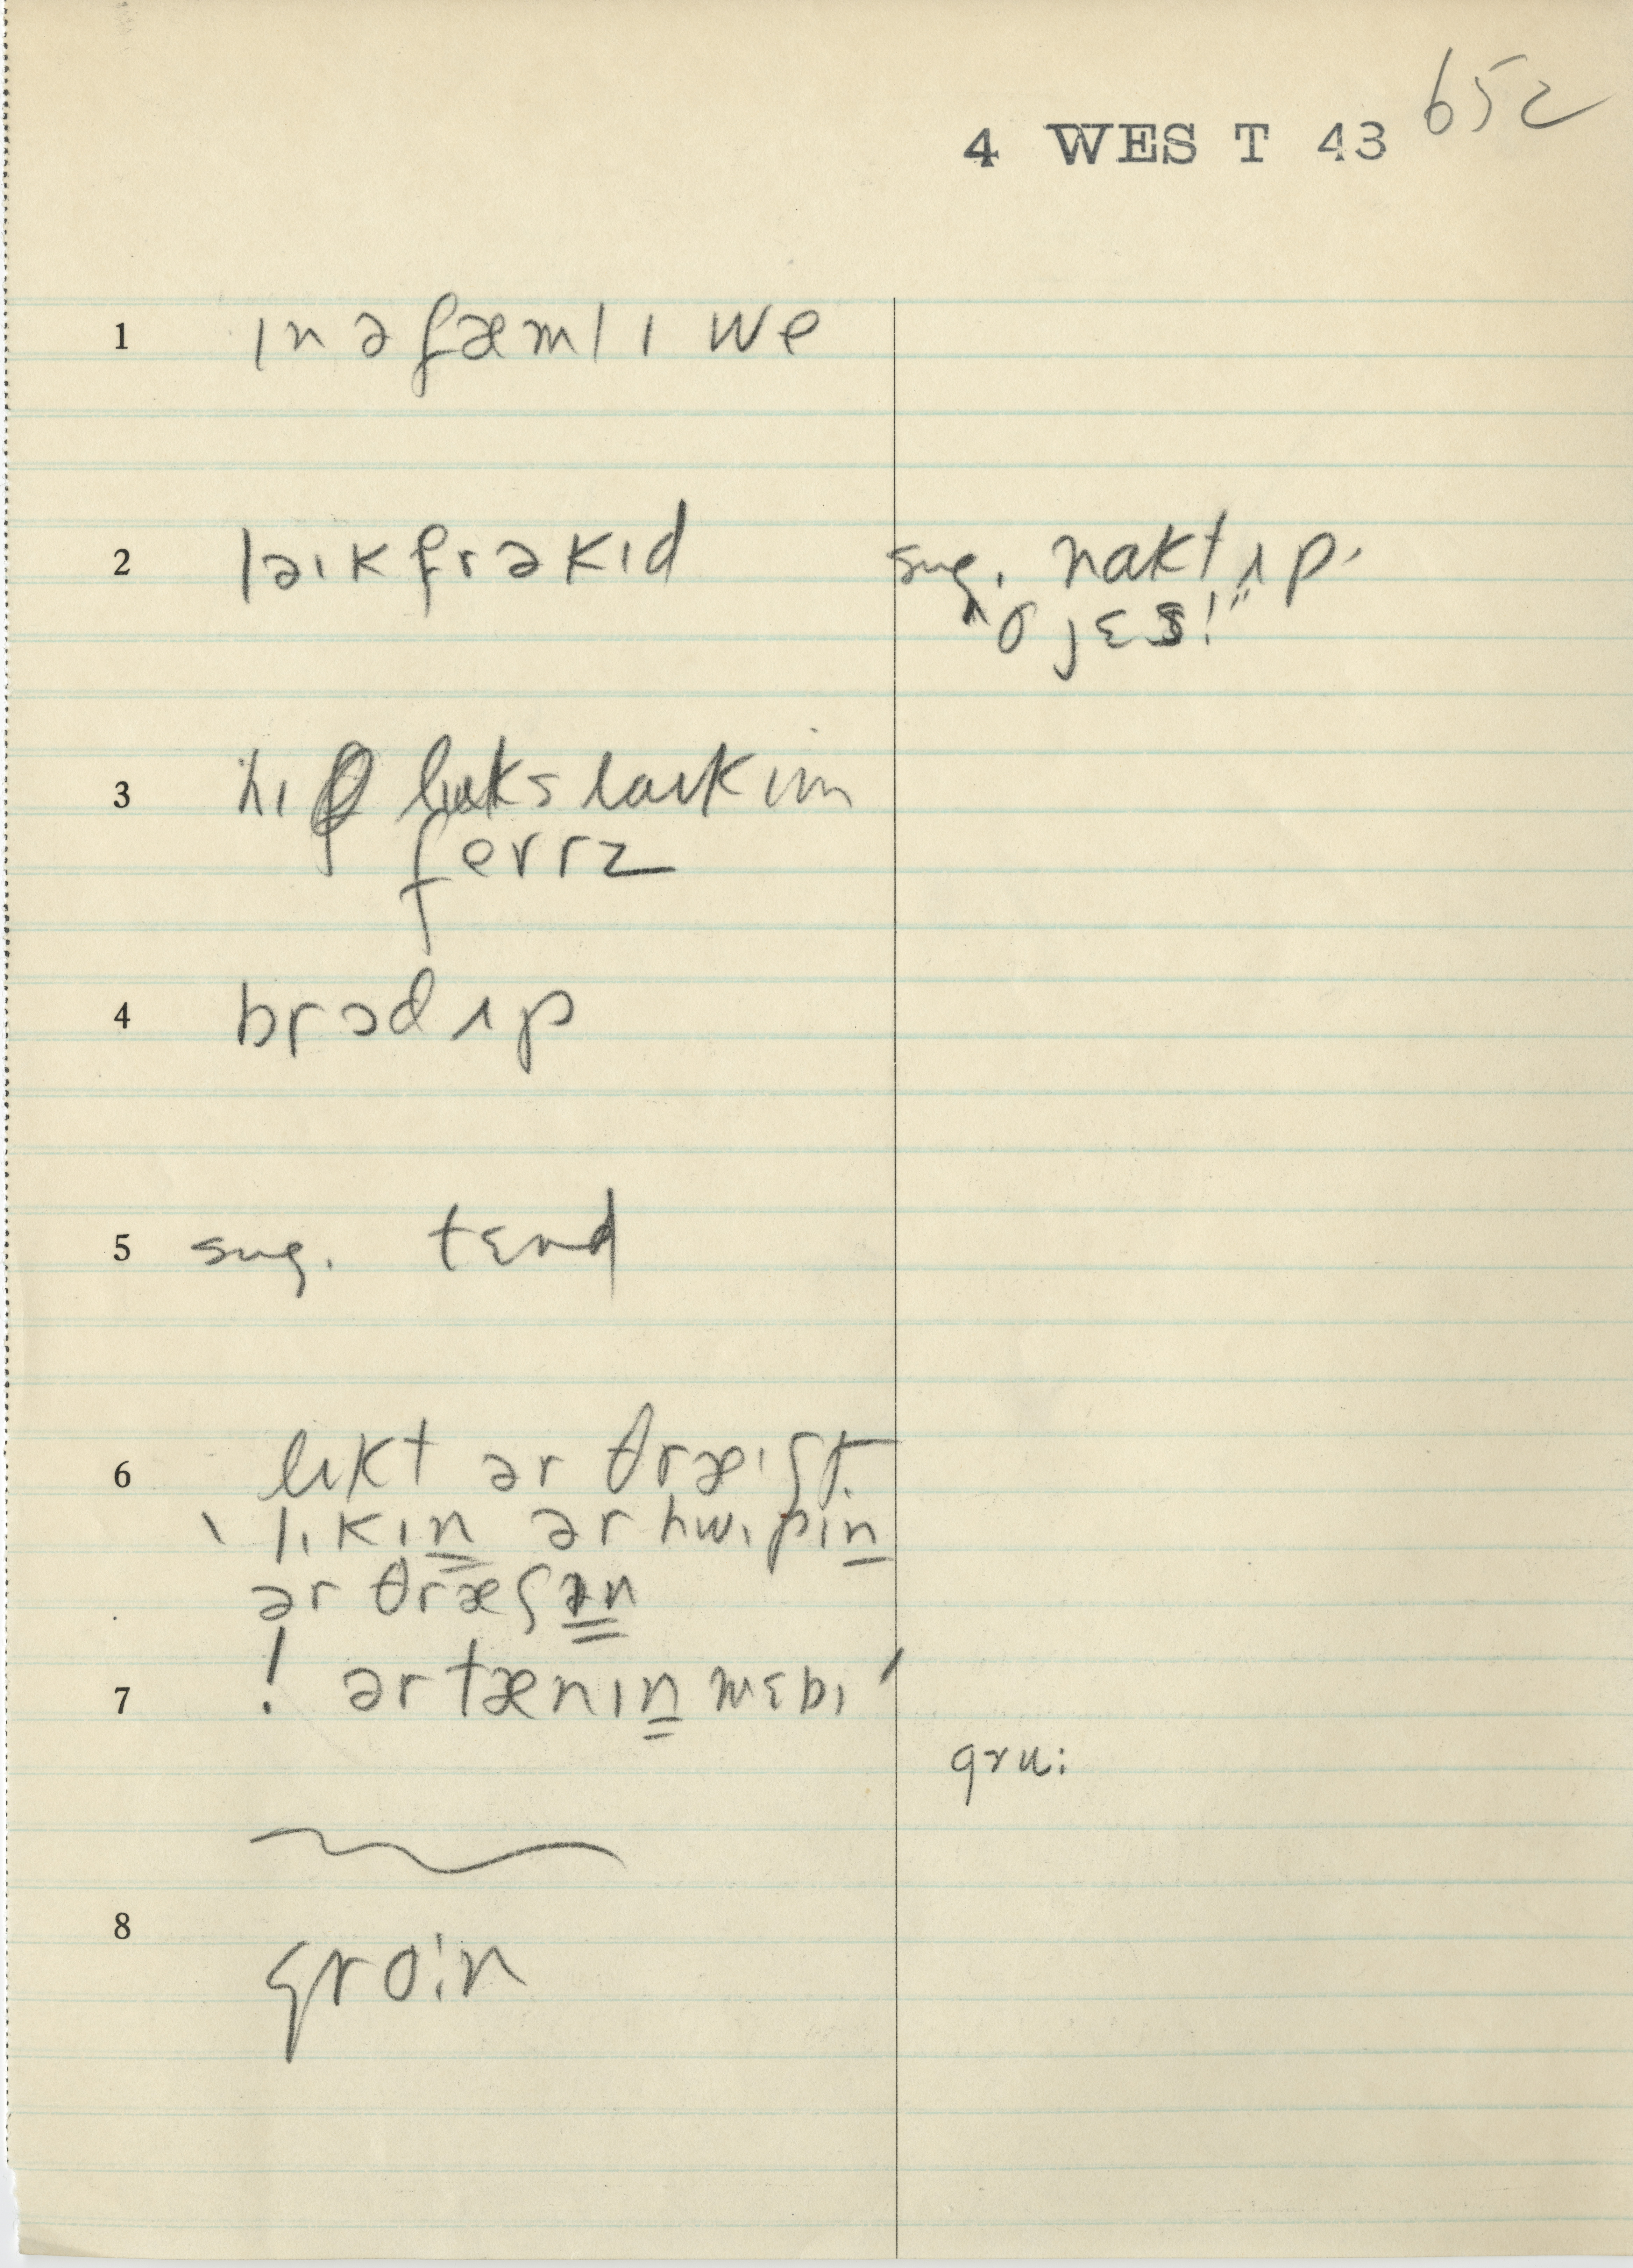 652
4 WEST 43
1 ɪn ə fæmlɪ we
2 ləɪk frəkɪd
sug. naktʌp.
"o jɛs!"
3 hɪ lʊks laɪk ɪm
4 brɔd ʌp
5 sug. tɛnd
6 lɪkt ər θræɪʃt.
lɪkɪn ər hwɪpɪn
ər θræʃɪn
7 ! ər tænɪn mɛbɪ
gru:
8 gro:n